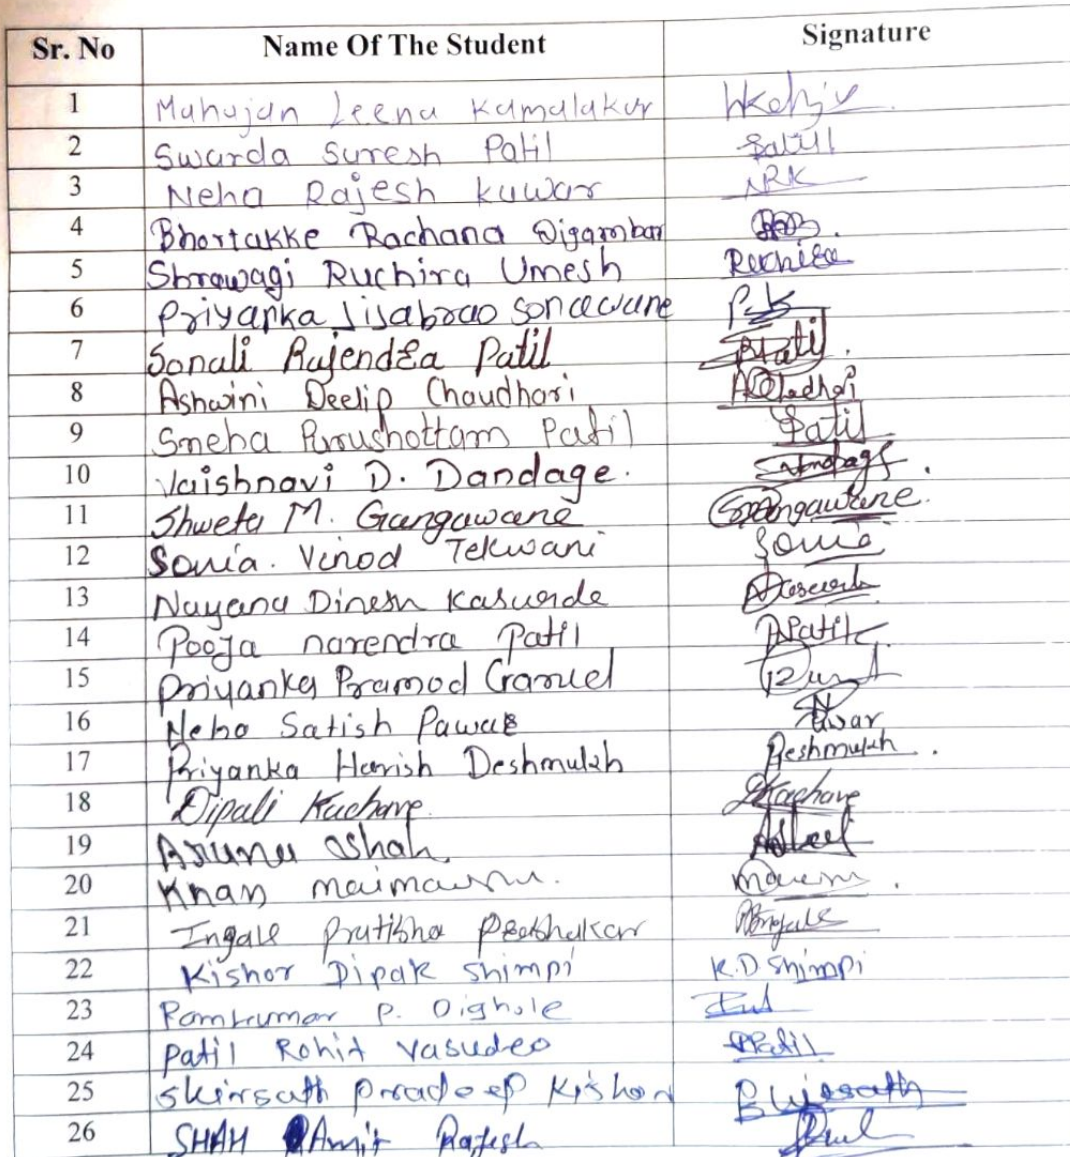 Sr. No Name Of The Student Signature
1 Mahajan Leena Kamalakar
2 Swarda Suresh Patil Patil
3 Neha Rajesh Kuwar NRK
4 Bhortakke Rachana Digambar
5 Shrawagi Ruchira Umesh Ruchira
6 Priyanka Jijabrao Sonawane
7 Sonali Rajendra Patil Patil
8 Ashwini Deelip Chaudhari
9 Sneha Purushottam Patil Patil
10 Vaishnavi D. Dandage.
11 Shweta M. Gangawane Gangawane.
12 Sonia. Vinod Tekwani Sonia
13 Nayana Dinesh Kasurde
14 Pooja narendra Patil APatil
15 Priyanka Pramod
16 Neha Satish Pawar Pawar
17 Priyanka Harish Deshmukh Deshmukh.
18 Dipali Kachave Kachave
19 Aruna Shah
20 Khan
21 Ingale Pratibha Prabhakar
22 Kishor Dipak Shimpi K.D Shimpi
23 Ramkumar P. Dighole
24 Patil Rohit Vasudeo RPatil
25 Pradeep Kishor
26 SHAH Amit Rajesh